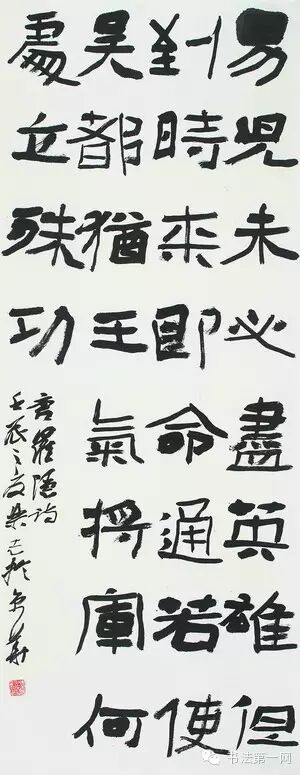 男兒未必盡英雄但
到時来即命通若使
吳都猶王氣將軍何
處立殊功
書羅隱詩
壬辰之夏樂於京華
书法第一网